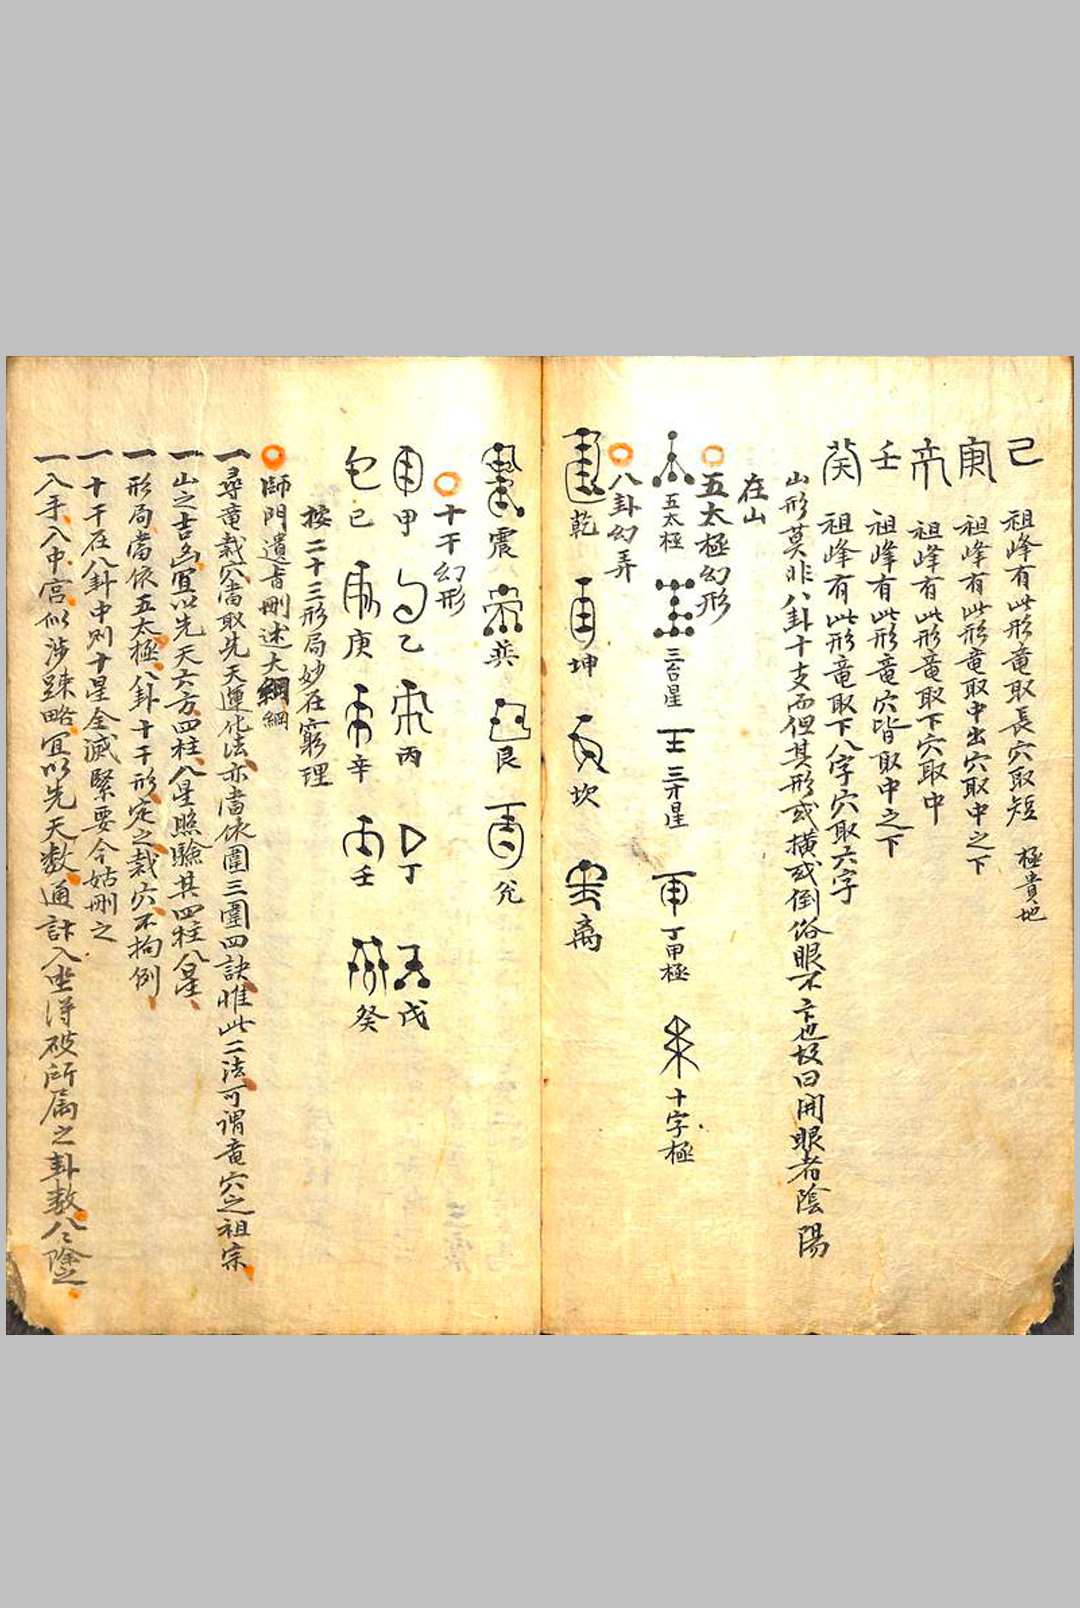 己 祖峰有此形竜取長穴取短 極貴地
庚 祖峰有此形竜取中出穴取中之下
辛 祖峰有此形竜取下穴取中
壬 祖峰有此形竜穴皆取中之下
癸 祖峰有此形竜取下八字穴取六字
山形莫非八卦十支而但其形或横或倒俗眼不卞也故曰開眼者陰陽
在山
五太極幻形
五太極 三台星 三才星 丁甲極 十字極
八卦幻弄
乾 坤 坎 离
震 巽 艮 兊
十干幻形
甲 乙 丙 丁 戊
己 庚 辛 壬 癸
按二十三形局妙在窮理
師門遺旨刪述大綱 綱
一尋竜裁穴當取先天運化法亦當依圍三圍四訣惟此二法可謂竜穴之祖宗
一山之吉凶宜以先天六方四柱八星照驗其四柱八星
一形局當依五太極八卦十干形定之裁穴不拘例
一十干在八卦中則十星全滅緊要今姑刪之
一入手入中宮似涉踈略宜以先天数通計入坐淂破所属之卦数八〻除之